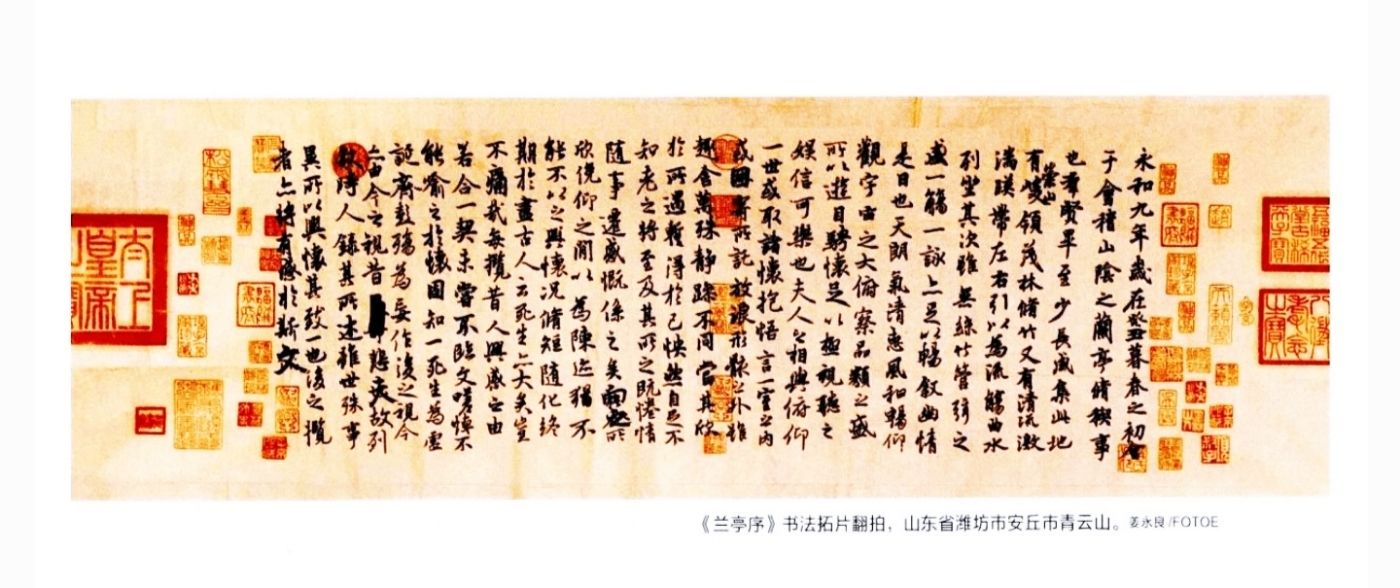 永和九年歲在癸丑暮春之初會
于會稽山陰之蘭亭脩稧事
也羣賢畢至少長咸集此地
有崇山峻領茂林脩竹又有清流激
湍暎帶左右引以為流觴曲水
列坐其次雖無絲竹管弦之
盛一觴一詠亦足以暢叙幽情
是日也天朗氣清惠風和暢仰
觀宇宙之大俯察品類之盛
所以遊目騁懷足以極視聽之
娛信可樂也夫人之相與俯仰
一世或取諸懷抱悟言一室之内
或因寄所託放浪形骸之外雖
趣舍萬殊静躁不同當其欣
於所遇暫得於己怏然自足不
知老之將至及其所之既惓情
隨事遷感慨係之矣向之所
欣俛仰之閒以為陳迹猶不
能不以之興懷況脩短隨化終
期於盡古人云死生亦大矣豈
不痛哉每攬昔人興感之由
若合一契未嘗不臨文嗟悼不
能喻之於懷固知一死生為虛
誕齊彭殤為妄作後之視今
亦由今之視昔悲夫故列
敘時人録其所述雖世殊事
異所以興懷其致一也後之攬
者亦將有感於斯文
《兰亭序》书法拓片翻拍，山东省潍坊市安丘市青云山。姜永良/FOTOE